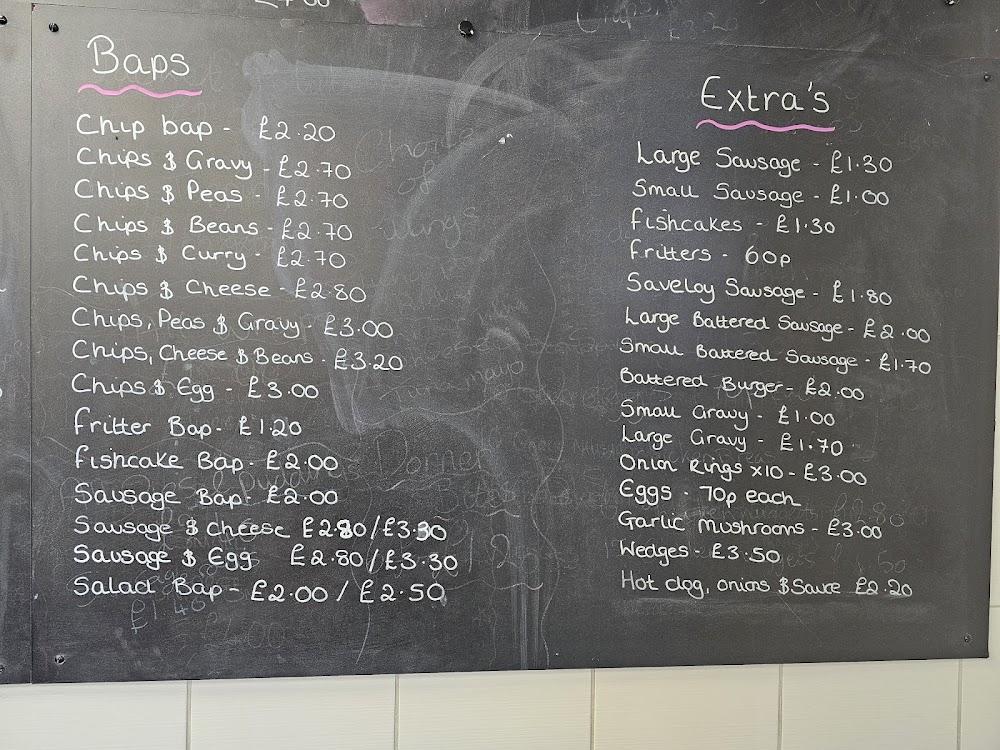 Baps
Chip bap - £2.20
Chips $ Gravy - £2.70
Chips $ Peas - £2.70
Chips $ Beans - £2.70
Chips $ Curry - £2.70
Chips $ Cheese - £2.80
Chips, Peas $ Gravy - £3.00
Chips, Cheese $ Beans - £3.20
Chips $ Egg - £3.00
Fritter Bap - £1.20
Fishcake Bap - £2.00
Sausage Bap - £2.00
Sausage $ Cheese £2.80/£3.30
Sausage $ Egg £2.80/£3.30
Salad Bap - £2.00 / £2.50
Extra's
Large Sausage - £1.30
Small Sausage - £1.00
Fishcakes - £1.30
Fritters - 60p
Saveloy Sausage - £1.80
Large Battered Sausage - £2.00
Small Battered Sausage - £1.70
Battered Burger - £2.00
Small Gravy - £1.00
Large Gravy - £1.70
Onion Rings x10 - £3.00
Eggs - 70p each
Garlic Mushrooms - £3.00
Wedges - £3.50
Hot dog, onions $ Sauce £2.20